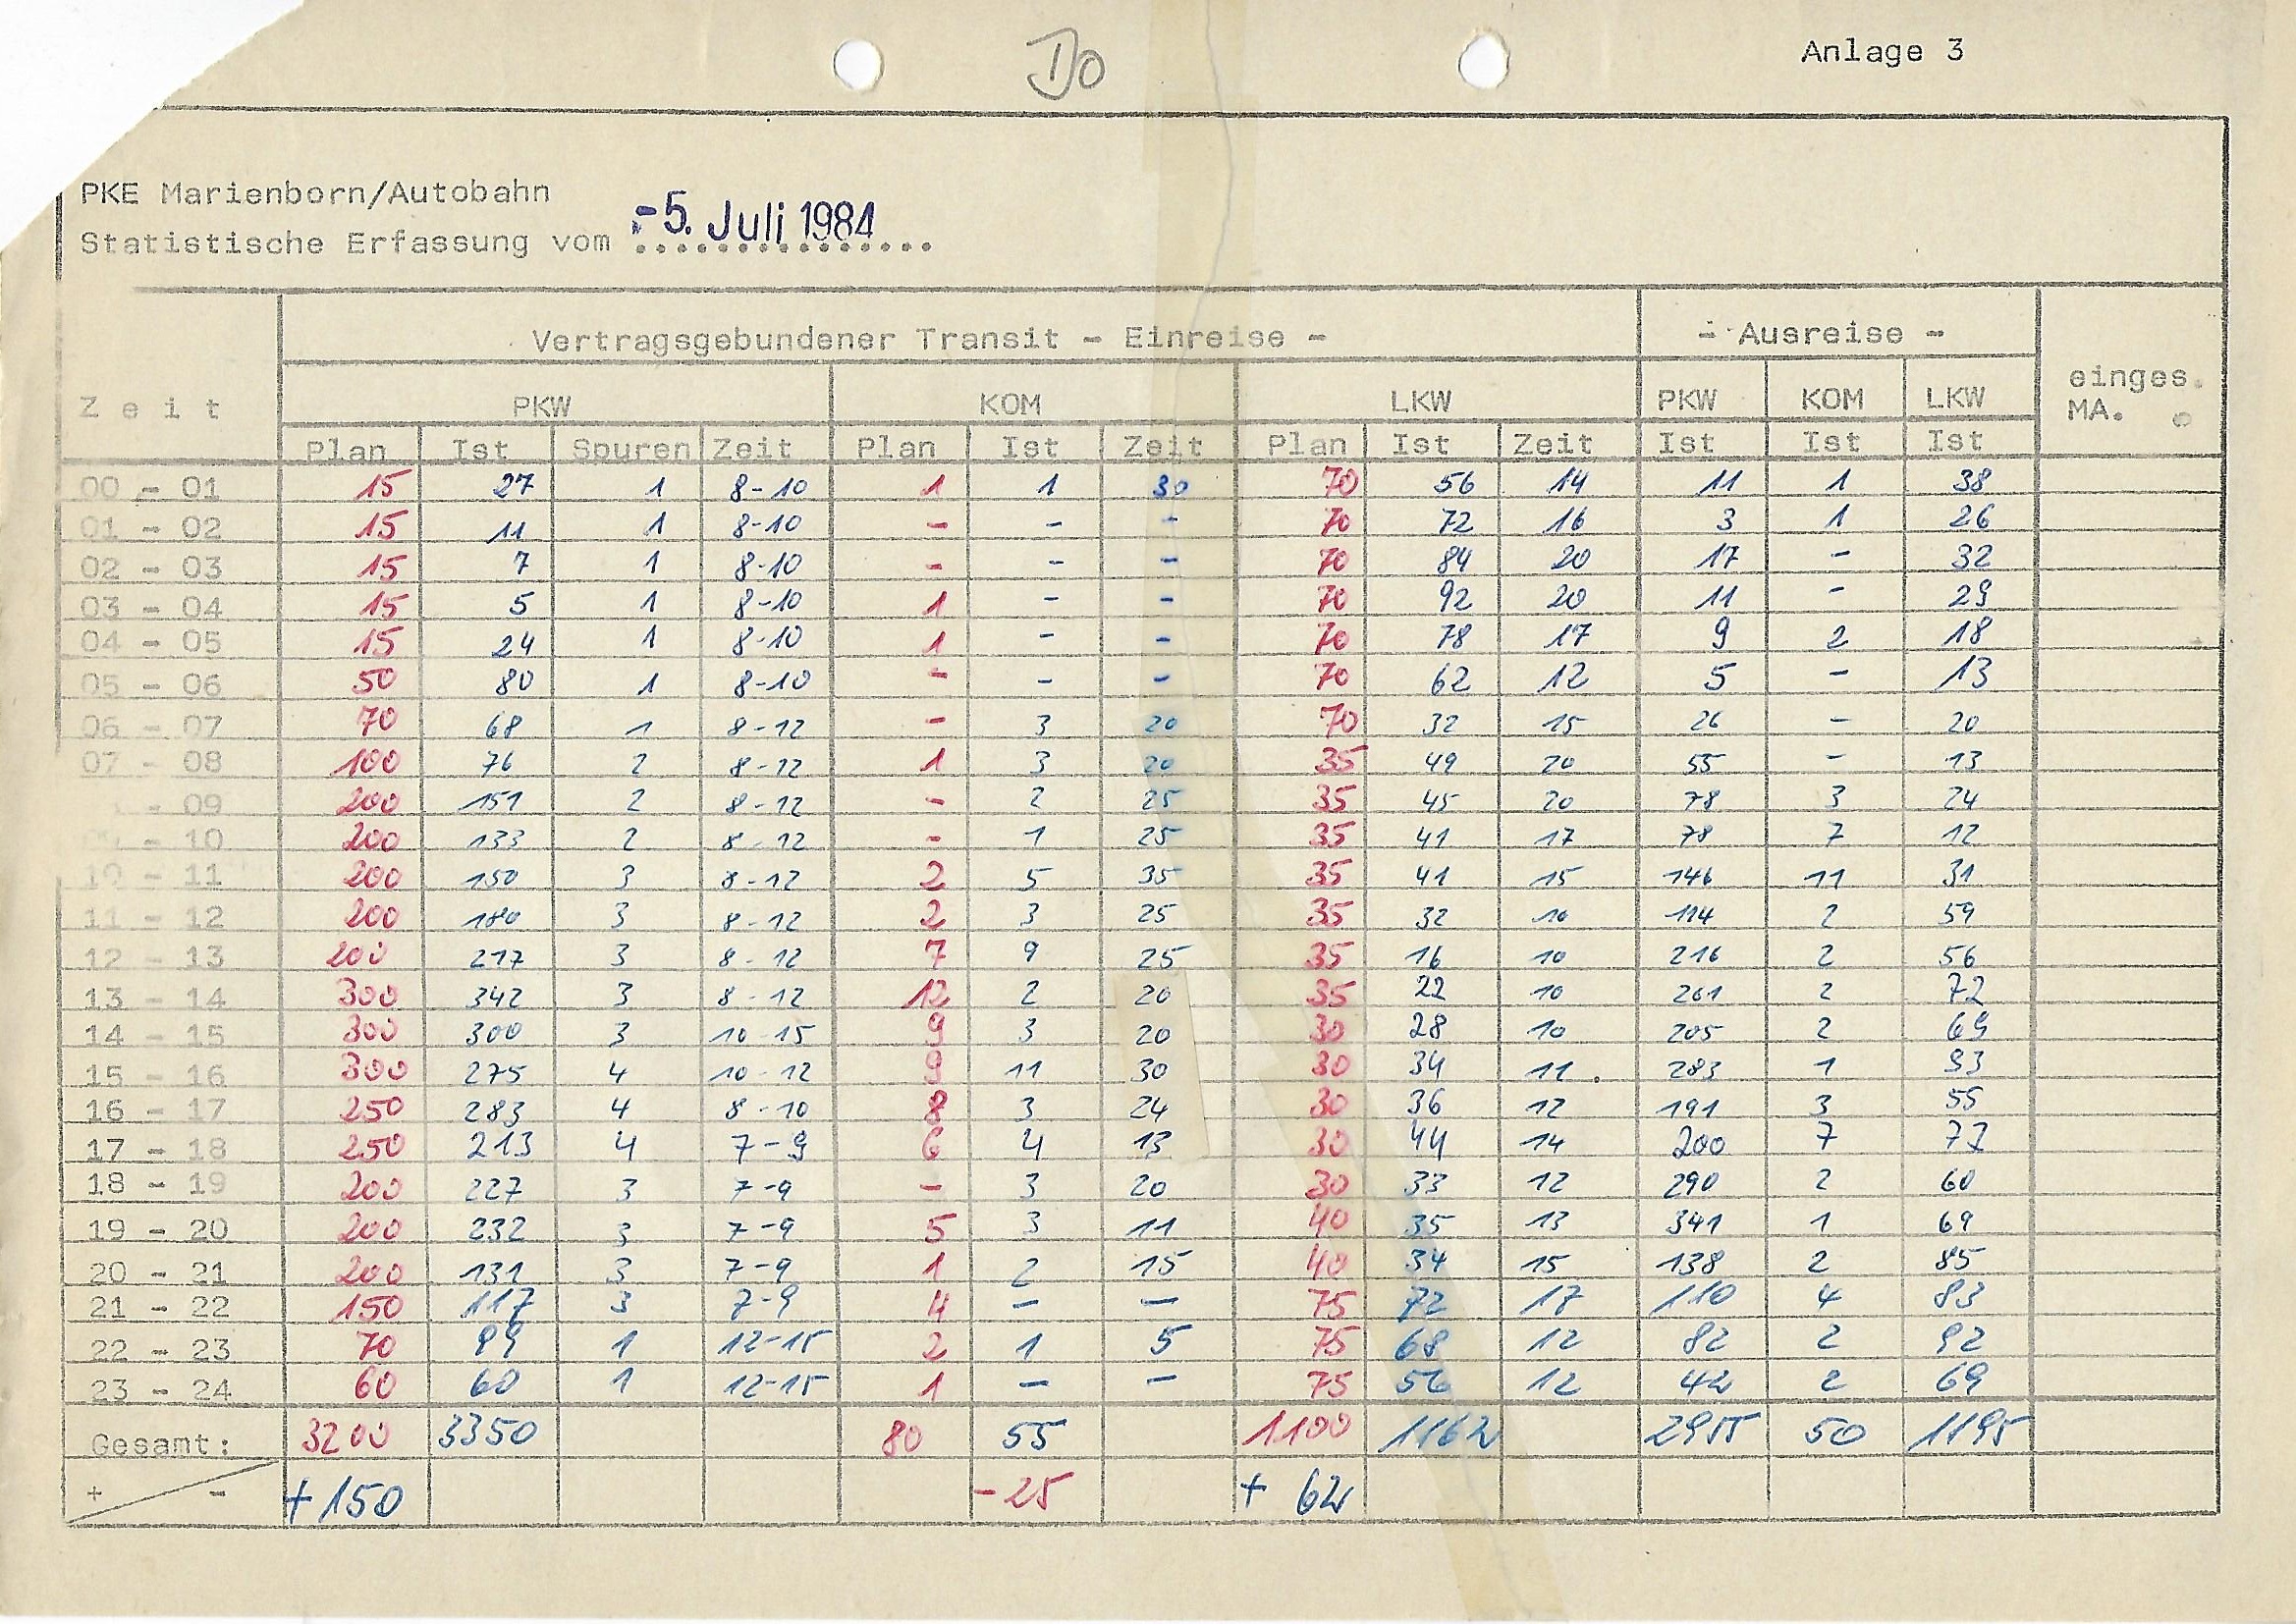 Do
Anlage 3
PKE Marienborn/Autobahn
Statistische Erfassung vom -5. Juli 1984
Zeit Vertragsgebundener Transit - Einreise - - Ausreise - einges. MA.
PKW KOM LKW PKW KOM LKW
Plan Ist Spuren Zeit Plan Ist Zeit Plan Ist Zeit Ist Ist Ist
00 - 01 15 27 1 8-10 1 1 30 70 56 14 11 1 38
01 - 02 15 11 1 8-10 - - - 70 72 16 3 1 26
02 - 03 15 7 1 8-10 - - - 70 84 20 17 - 32
03 - 04 15 5 1 8-10 1 - - 70 92 20 11 - 29
04 - 05 15 24 1 8-10 1 - - 70 78 17 9 2 18
05 - 06 50 80 1 8-10 - - - 70 62 12 5 - 13
06 - 07 70 68 1 8-12 - 3 20 70 32 15 26 - 20
07 - 08 100 76 2 8-12 1 3 20 35 49 20 55 - 13
- 09 200 151 2 8-12 - 2 25 35 45 20 78 3 24
- 10 200 133 2 8-12 - 1 25 35 41 17 78 7 12
10 - 11 200 150 3 8-12 2 5 35 35 41 15 146 11 31
11 - 12 200 180 3 8-12 2 3 25 35 32 10 114 2 59
12 - 13 200 217 3 8-12 7 9 25 35 16 10 216 2 56
13 - 14 300 342 3 8-12 12 2 20 35 22 10 261 2 72
14 - 15 300 300 3 10-15 9 3 20 30 28 10 205 2 69
15 - 16 300 275 4 10-12 9 11 30 30 34 11 283 1 93
16 - 17 250 283 4 8-10 8 3 24 30 36 12 191 3 55
17 - 18 250 213 4 7-9 6 4 13 30 44 14 200 7 77
18 - 19 200 227 3 7-9 - 3 20 30 33 12 290 2 60
19 - 20 200 232 3 7-9 5 3 11 40 35 13 341 1 69
20 - 21 200 131 3 7-9 1 2 15 40 34 15 138 2 85
21 - 22 150 117 3 7-9 4 - - 75 72 17 110 4 83
22 - 23 70 99 1 12-15 2 1 5 75 68 12 82 2 92
23 - 24 60 60 1 12-15 1 - - 75 56 12 42 2 69
Gesamt: 3200 3350 80 55 1100 1162 2955 50 1195
+ - +150 -25 + 62